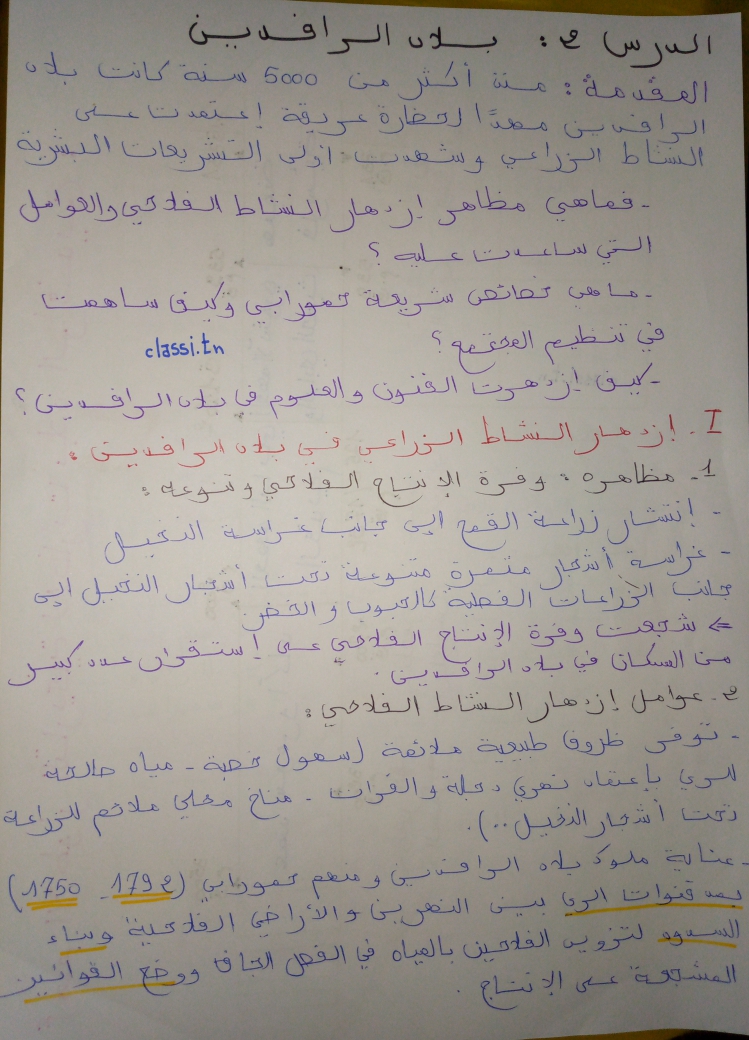 الدرس 2: بلاد الرافدين
المقدمة: منذ أكثر من 5000 سنة كانت بلاد
الرافدين مهدًا لحضارة عريقة إعتمدت على
النشاط الزراعي وشهدت اولى التشريعات البشرية
- فماهي مظاهر إزدهار النشاط الفلاحي والعوامل
التي ساعدت عليه؟
- ماهي خصائص شريعة حمورابي وكيف ساهمت
في تنظيم المجتمع؟
classi.tn
- كيف إزدهرت الفنون والعلوم في بلاد الرافدين؟
I - إزدهار النشاط الزراعي في بلاد الرافدين:
1- مظاهره: وفرة الإنتاج الفلاحي وتنوعه:
- إنتشار زراعة القمح إلى جانب غراسة النخيل
- غراسة أشجار مثمرة متنوعة تحت أشجار النخيل إلى
جانب الزراعات الفصلية كالحبوب والخضر
⇐ شجعت وفرة الإنتاج الفلاحي على إستقرار عدد كبير
من السكان في بلاد الرافدين.
2- عوامل إزدهار النشاط الفلاحي:
- توفر ظروف طبيعية ملائمة (سهول خصبة - مياه صالحة
للري بإعتماد نهري دجلة والفرات - مناخ محلي ملائم للزراعة
تحت أشجار النخيل..).
- عناية ملوك بلاد الرافدين ومنهم حمورابي (1792 - 1750)
بمد قنوات الري بين النهرين والأراضي الفلاحية وبناء
السدود لتزويد الفلاحين بالمياه في الفصل الجاف ووضع القوانين
المشجعة على الإنتاج.